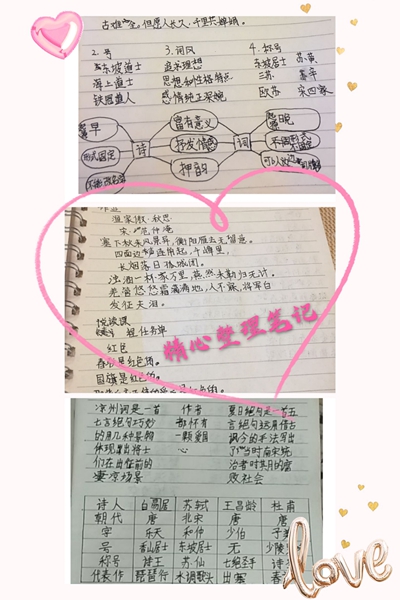 古难全,但愿人长久,千里共婵娟。
2.号 3.词风 4.称号
东坡道士 追求理想 东坡居士 苏黄
海上道士 思想和性格特点 三苏 苏辛
铁冠道人 感情纯正深婉 欧苏 宋四家
早 富有意义 晚
形式固定 诗 抒发情感 词 不同形式
押韵
渔家傲·秋思
宋 范仲淹
塞下秋来风景异,衡阳雁去无留意。
四面边声连角起,千嶂里,
长烟落日孤城闭。
浊酒一杯家万里,燕然未勒归无计。
羌管悠悠霜满地,人不寐,将军白
发征夫泪。
悦读课
担任务单
红色
春心是红色的。
国旗是红色的。
精心整理笔记
凉州词是一首 作者 夏日绝句是一首五
七言绝句巧妙 都怀有 言绝句运用借古
的用几种景物 一颗爱国 讽今的手法写出
体现了出将士 心 了当时南宋统
们在出征前的 治者时期的腐
凄凉场景 败社会
诗人 白居易 苏轼 王昌龄 杜甫
朝代 唐 北宋 唐 唐
字 乐天 和仲 少伯 子美
号 香山居士 东坡居士 无 少陵
称号 诗王 苏仙 七绝圣手 诗
代表作 琵琶行 水调歌头 出塞 春
love